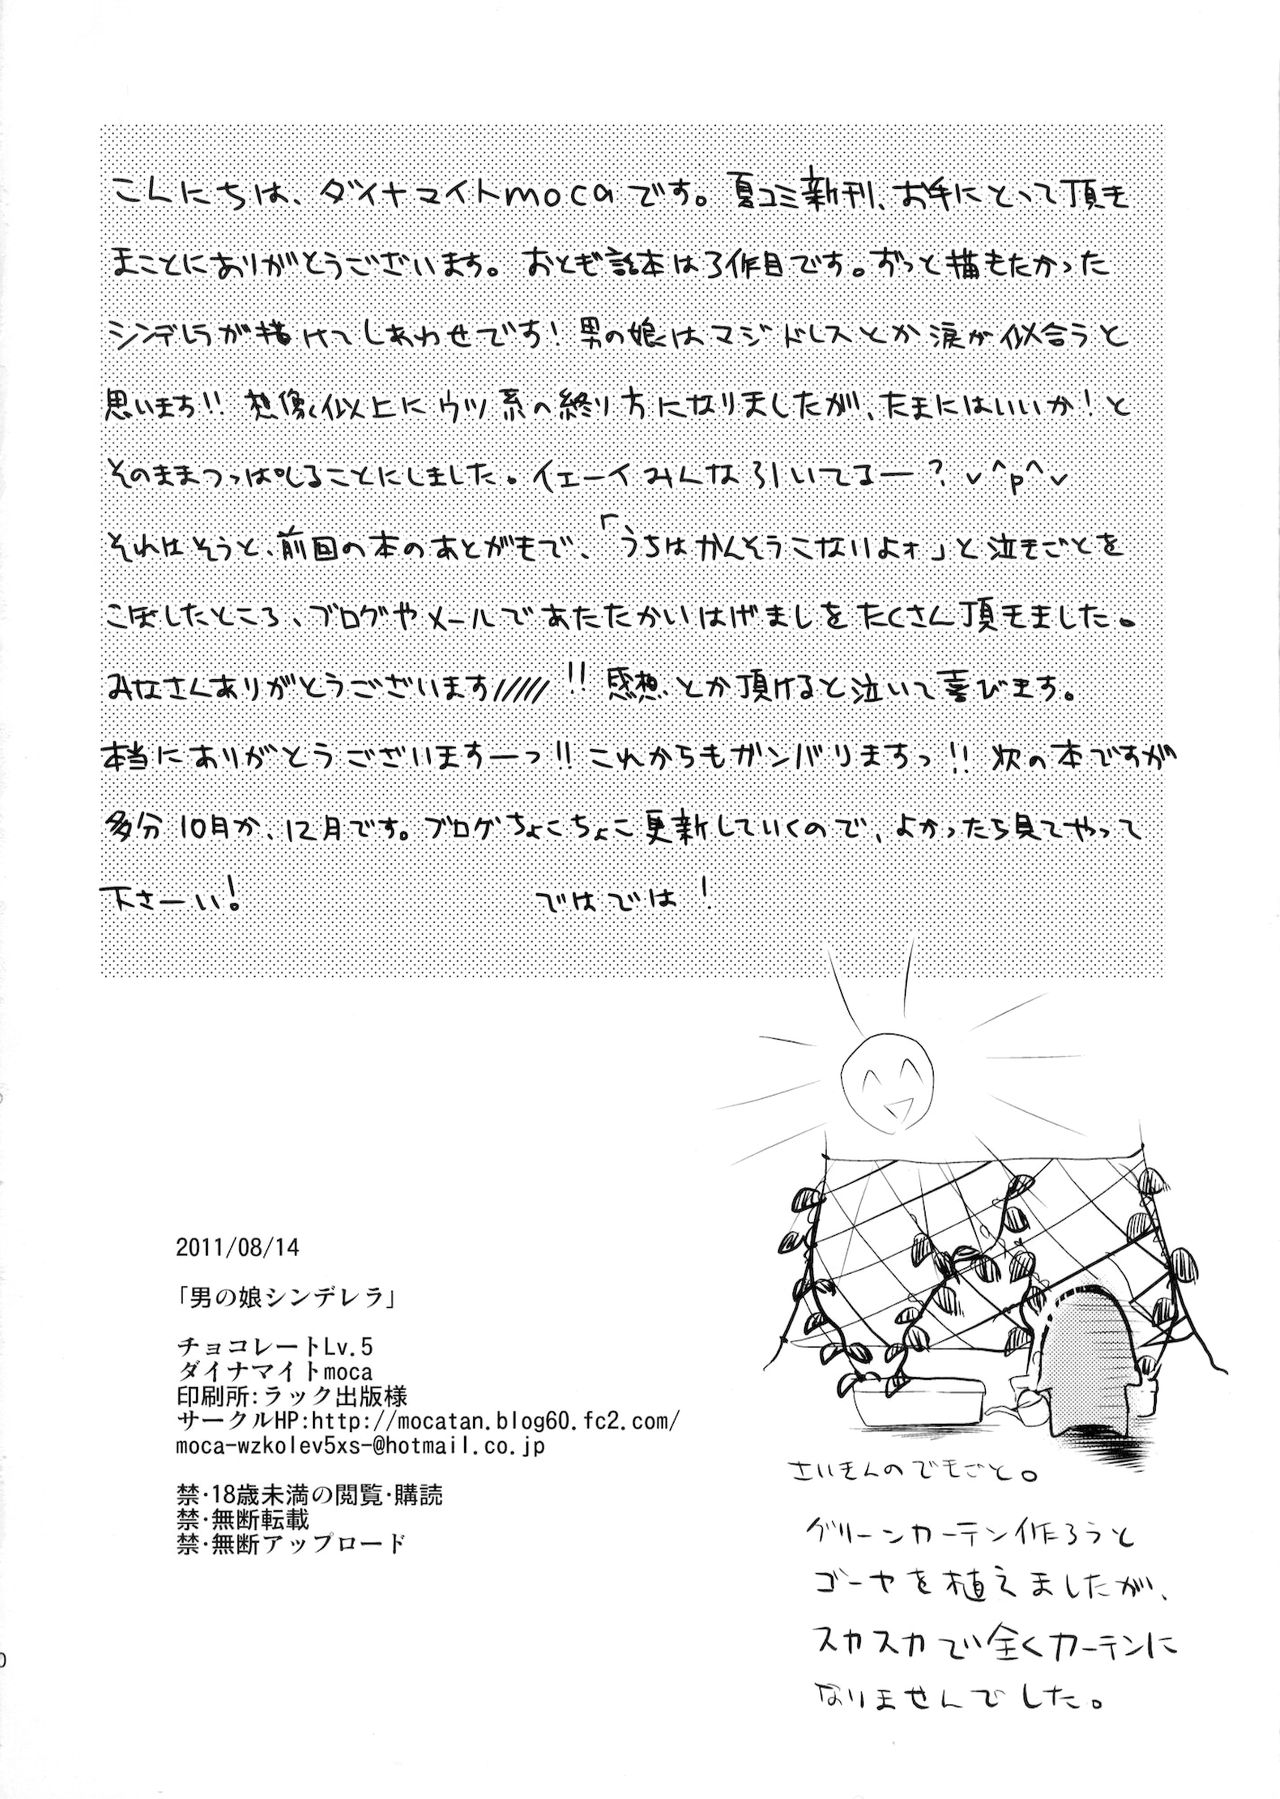 こんにちは、ダイナマイトmocaです。夏コミ新刊、お手にとって頂き
まことにありがとうございます。おとぎ話本は3作目です。ずっと描きたかった
シンデレラが描けてしあわせです！男の娘はマジドレスとか涙が似合うと
思います!!想像以上にウツ系の終り方になりましたが、たまにはいいか！と
そのままつっぱしることにしました。イェーイみんな引いてるー？v^p^v
それはそうと、前回の本のあとがきで、「うちはかんそうこないよォ」と泣きごとを
こぼしたところ、ブログやメールであたたかいはげましをたくさん頂きました。
みなさんありがとうございます/////!!感想とか頂けると泣いて喜びます。
本当にありがとうございますーっ!!これからもガンバリますっ!!次の本ですが
多分10月か、12月です。ブログちょこちょこ更新していくので、よかったら見てやって
下さーい！ ではでは！
2011/08/14
「男の娘シンデレラ」
チョコレートLv.5
ダイナマイトmoca
印刷所:ラック出版様
サークルHP:http://mocatan.blog60.fc2.com/
moca-wzkolev5xs-@hotmail.co.jp
禁・18歳未満の閲覧・購読
禁・無断転載
禁・無断アップロード
さいきんのできごと。
グリーンカーテン作ろうと
ゴーヤを植えましたが、
スカスカで全くカーテンに
なりませんでした。